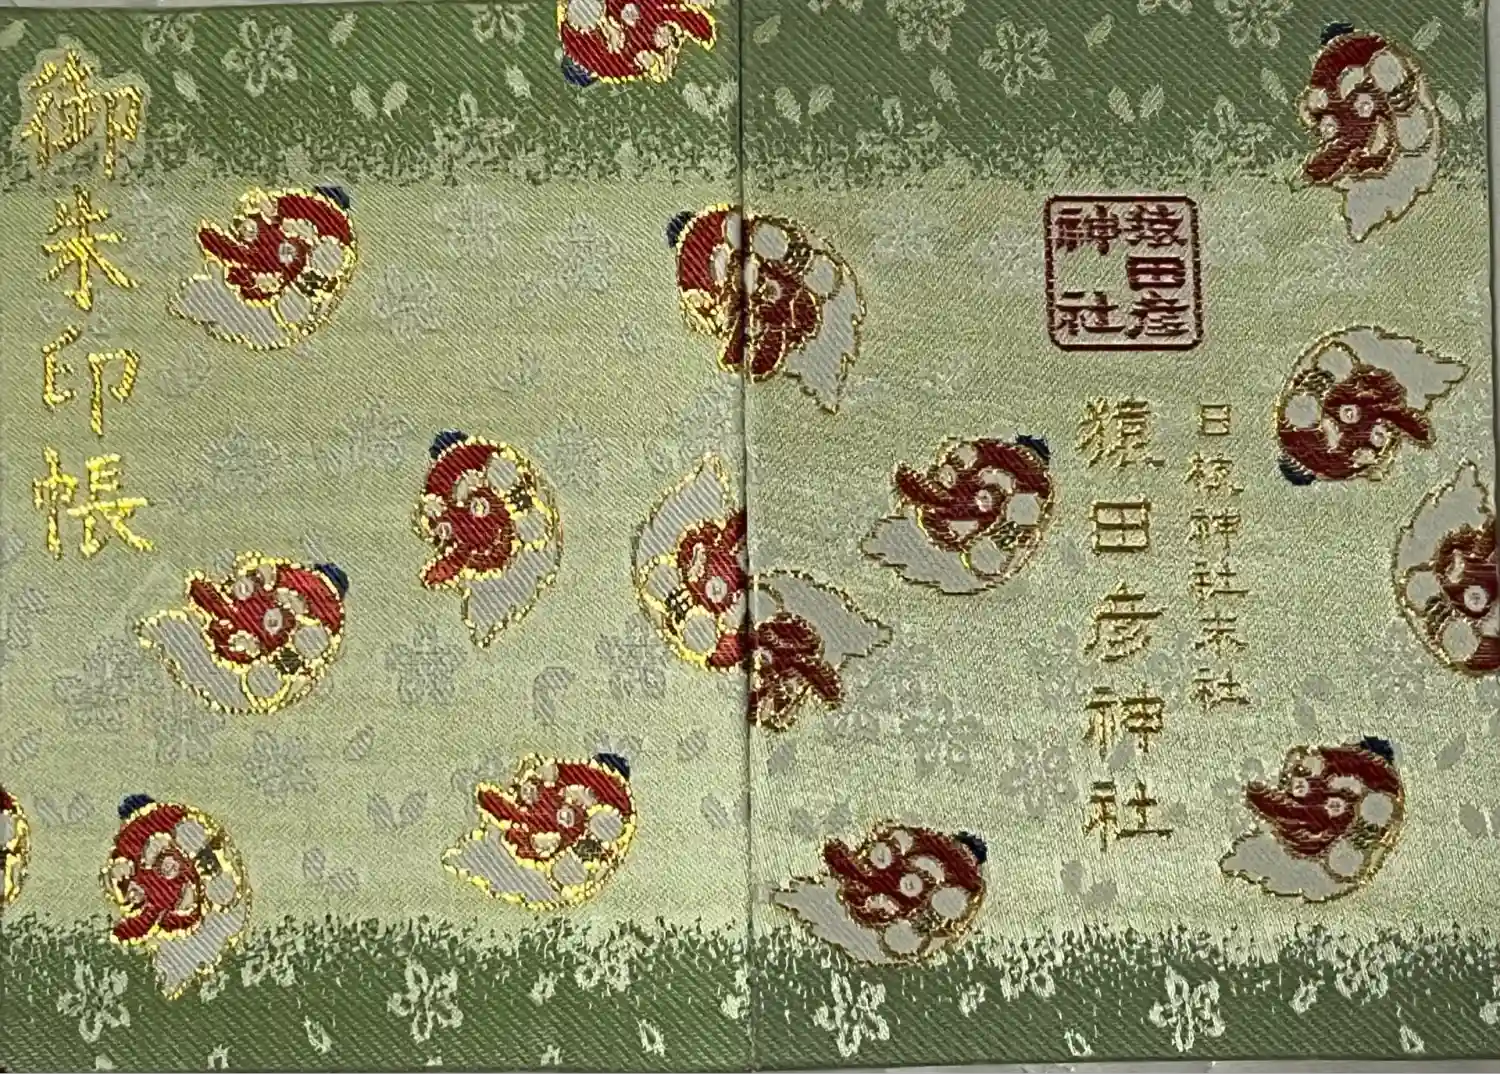 猿田彦
神社
日枝神社末社
猿田彦神社
御朱印帳